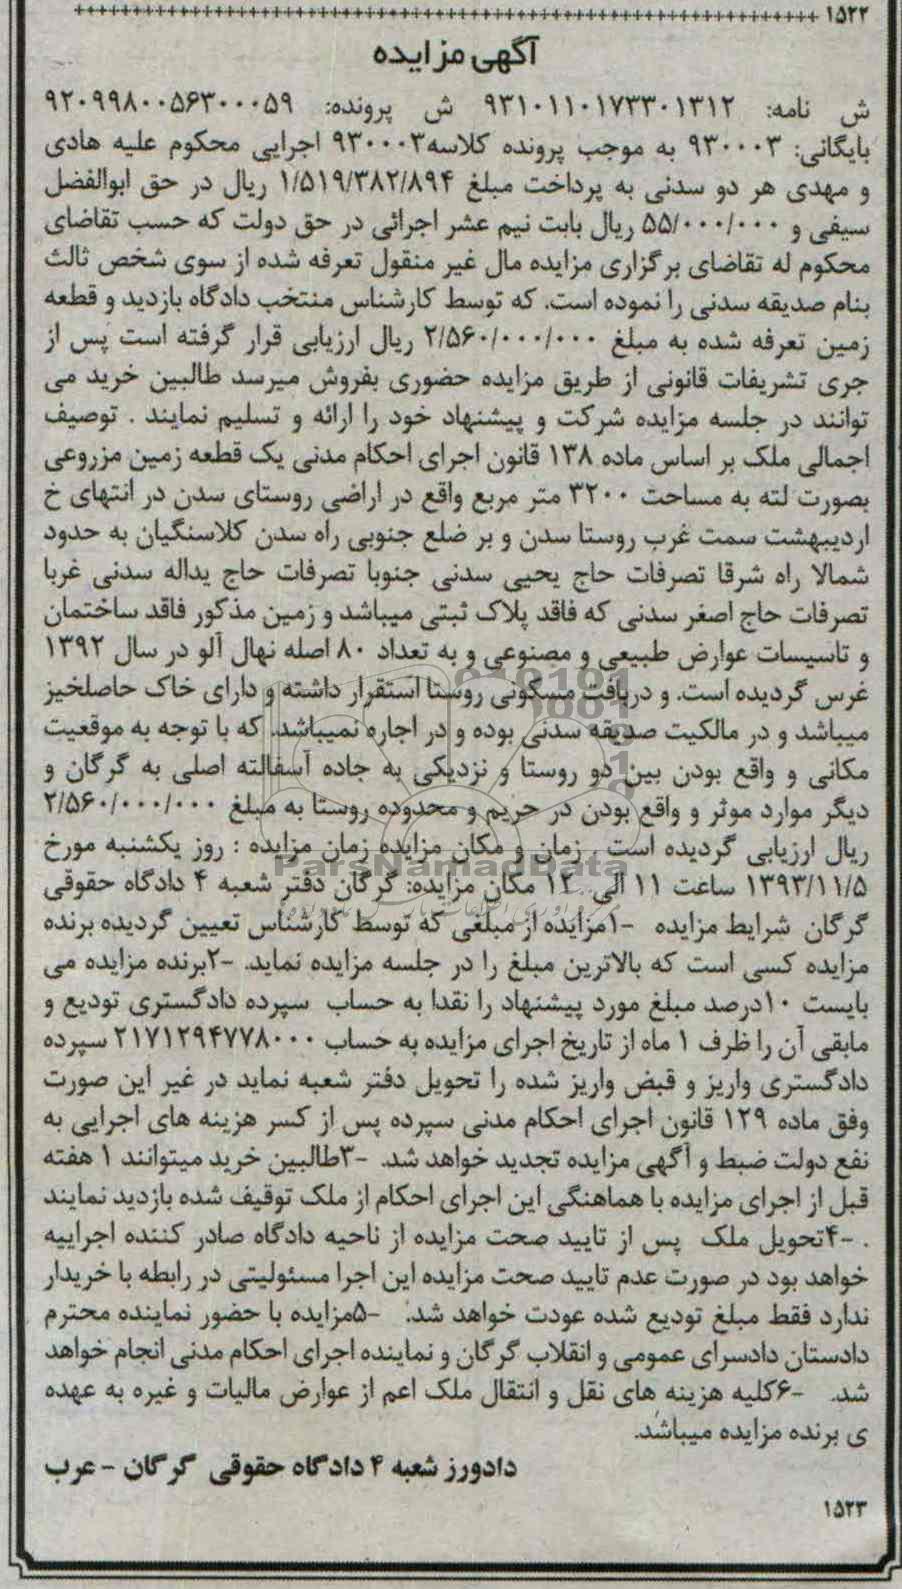 ۱۵۲۲
آگهی مزایده
ش نامه: ۹۳۱۰۱۱۰۱۷۳۳۰۱۳۱۲ ش پرونده: ۹۲۰۹۹۸۰۰۵۶۳۰۰۰۵۹
بایگانی: ۹۳۰۰۰۳ به موجب پرونده کلاسه۹۳۰۰۰۳ اجرایی محکوم علیه هادی
و مهدی هر دو سدنی به پرداخت مبلغ ۱/۵۱۹/۳۸۲/۸۹۴ ریال در حق ابوالفضل
سیفی و ۵۵/۰۰۰/۰۰۰ ریال بابت نیم عشر اجرائی در حق دولت که حسب تقاضای
محکوم له تقاضای برگزاری مزایده مال غیر منقول تعرفه شده از سوی شخص ثالث
بنام صدیقه سدنی را نموده است. که توسط کارشناس منتخب دادگاه بازدید و قطعه
زمین تعرفه شده به مبلغ ۲/۵۶۰/۰۰۰/۰۰۰ ریال ارزیابی قرار گرفته است پس از
جری تشریفات قانونی از طریق مزایده حضوری بفروش میرسد طالبین خرید می
توانند در جلسه مزایده شرکت و پیشنهاد خود را ارائه و تسلیم نمایند . توصیف
اجمالی ملک بر اساس ماده ۱۳۸ قانون اجرای احکام مدنی یک قطعه زمین مزروعی
بصورت لته به مساحت ۳۲۰۰ متر مربع واقع در اراضی روستای سدن در انتهای خ
اردیبهشت سمت غرب روستا سدن و بر ضلع جنوبی راه سدن کلاسنگیان به حدود
شمالا راه شرقا تصرفات حاج یحیی سدنی جنوبا تصرفات حاج یداله سدنی غربا
تصرفات حاج اصغر سدنی که فاقد پلاک ثبتی میباشد و زمین مذکور فاقد ساختمان
و تاسیسات عوارض طبیعی و مصنوعی و به تعداد ۸۰ اصله نهال آلو در سال ۱۳۹۲
غرس گردیده است. و دربافت مسکونی روستا استقرار داشته و دارای خاک حاصلخیز
میباشد و در مالکیت صدیقه سدنی بوده و در اجاره نمیباشد. که با توجه به موقعیت
مکانی و واقع بودن بین دو روستا و نزدیکی به جاده آسفالته اصلی به گرگان و
دیگر موارد موثر و واقع بودن در حریم و محدوده روستا به مبلغ ۲/۵۶۰/۰۰۰/۰۰۰
ریال ارزیابی گردیده است . زمان و مکان مزایده زمان مزایده : روز یکشنبه مورخ
۱۳۹۳/۱۱/۵ ساعت ۱۱ الی ۱۲ مکان مزایده: گرگان دفتر شعبه ۴ دادگاه حقوقی
گرگان شرایط مزایده -۱مزایده از مبلغی که توسط کارشناس تعیین گردیده برنده
مزایده کسی است که بالاترین مبلغ را در جلسه مزایده نماید. -۲برنده مزایده می
بایست ۱۰درصد مبلغ مورد پیشنهاد را نقدا به حساب سپرده دادگستری تودیع و
مابقی آن را ظرف ۱ ماه از تاریخ اجرای مزایده به حساب ۲۱۷۱۲۹۴۷۷۸۰۰۰ سپرده
دادگستری واریز و قبض واریز شده را تحویل دفتر شعبه نماید در غیر این صورت
وفق ماده ۱۲۹ قانون اجرای احکام مدنی سپرده پس از کسر هزینه های اجرایی به
نفع دولت ضبط و آگهی مزایده تجدید خواهد شد. -۳طالبین خرید میتوانند ۱ هفته
قبل از اجرای مزایده با هماهنگی این اجرای احکام از ملک توقیف شده بازدید نمایند
. -۴تحویل ملک پس از تایید صحت مزایده از ناحیه دادگاه صادر کننده اجراییه
خواهد بود در صورت عدم تایید صحت مزایده این اجرا مسئولیتی در رابطه با خریدار
ندارد فقط مبلغ تودیع شده عودت خواهد شد. -۵مزایده با حضور نماینده محترم
دادستان دادسرای عمومی و انقلاب گرگان و نماینده اجرای احکام مدنی انجام خواهد
شد. -۶کلیه هزینه های نقل و انتقال ملک اعم از عوارض مالیات و غیره به عهده
ی برنده مزایده میباشد.
دادورز شعبه ۴ دادگاه حقوقی گرگان - عرب
۱۵۲۳
ParsNamadData